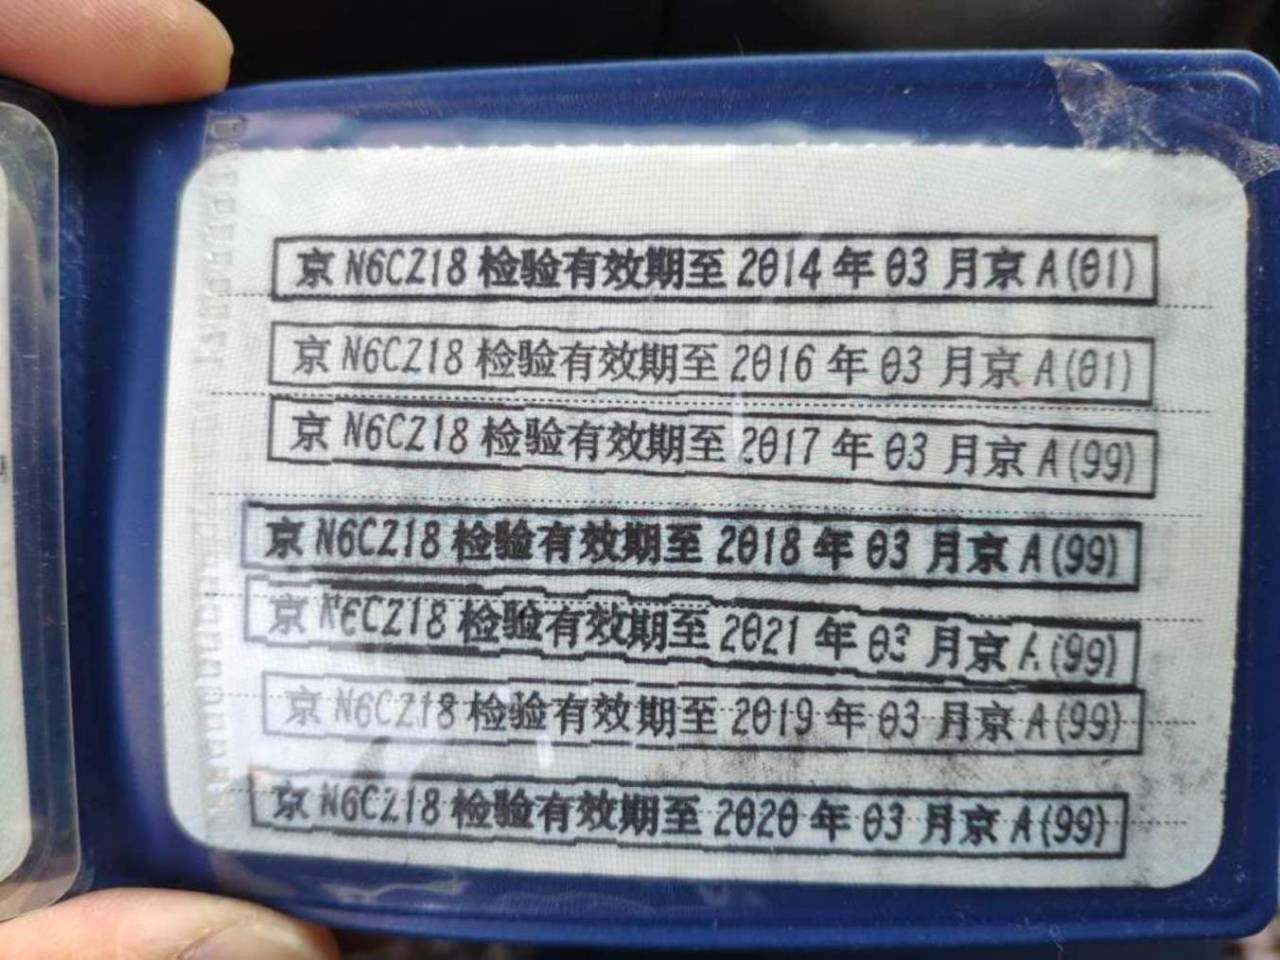 京 N6CZ18 检验有效期至 2014 年 03 月京 A(01)
京 N6CZ18 检验有效期至 2016 年 03 月京 A(01)
京 N6CZ18 检验有效期至 2017 年 03 月京 A(99)
京 N6CZ18 检验有效期至 2018 年 03 月京 A(99)
京 N6CZ18 检验有效期至 2021 年 03 月京 A(99)
京 N6CZ18 检验有效期至 2019 年 03 月京 A(99)
京 N6CZ18 检验有效期至 2020 年 03 月京 A(99)